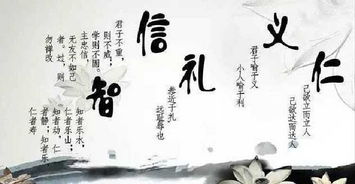 仁
己欲立而立人
己欲达而达人
义
君子喻于义
小人喻于利
礼
恭近于礼
远耻辱也
信
君子不重,
则不威;
学则不固。
主忠信,
无友不如己
者。过,则
勿惮改
智
知者乐水,
仁者乐山;
知者动,仁
者静;知者乐
仁者寿